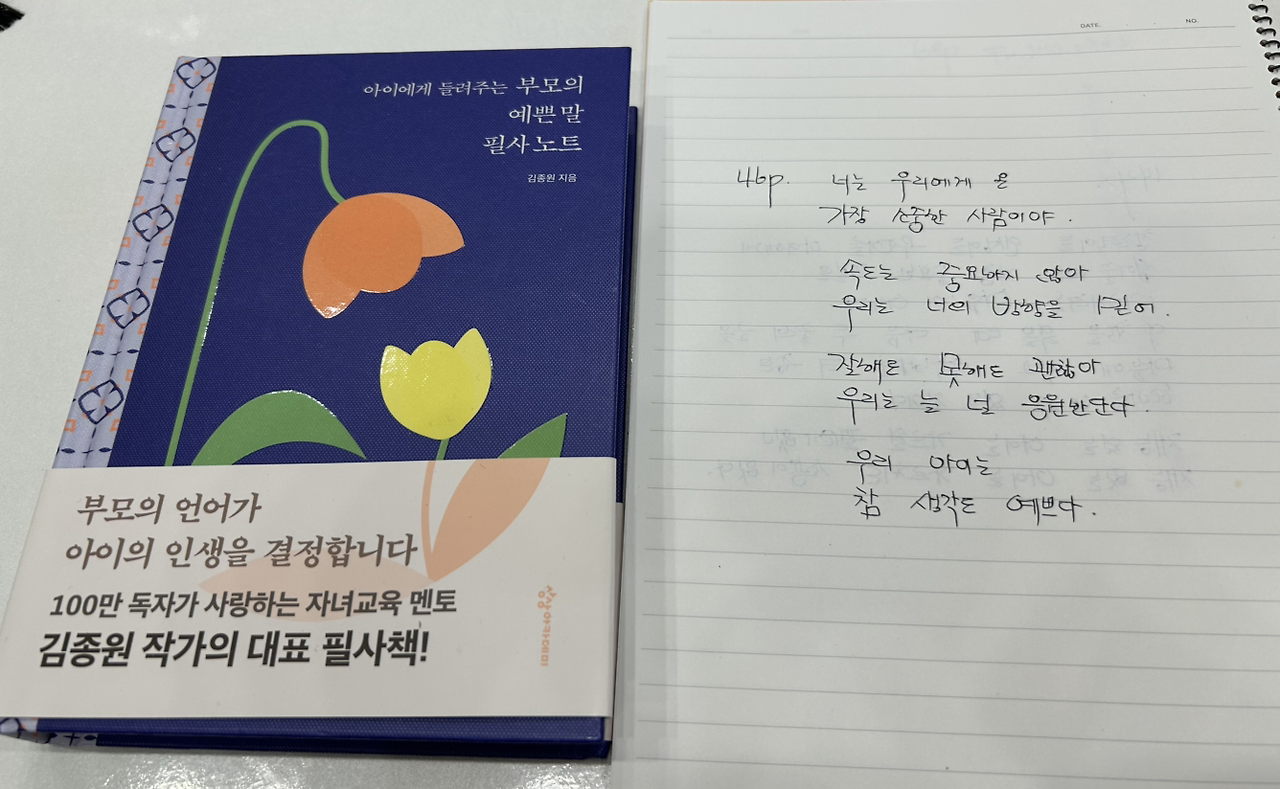 아이에게 들려주는 부모의
예쁜 말
필사 노트
김종원 지음
부모의 언어가
아이의 인생을 결정합니다
100만 독자가 사랑하는 자녀교육 멘토
김종원 작가의 대표 필사책!
DATE. NO.
46p. 너는 우리에게 온
가장 소중한 사람이야.
속도는 중요하지 않아
우리는 너의 방향을 믿어.
잘해도 못해도 괜찮아
우리는 늘 널 응원한단다.
우리 아이는
참 생각도 예쁘다.